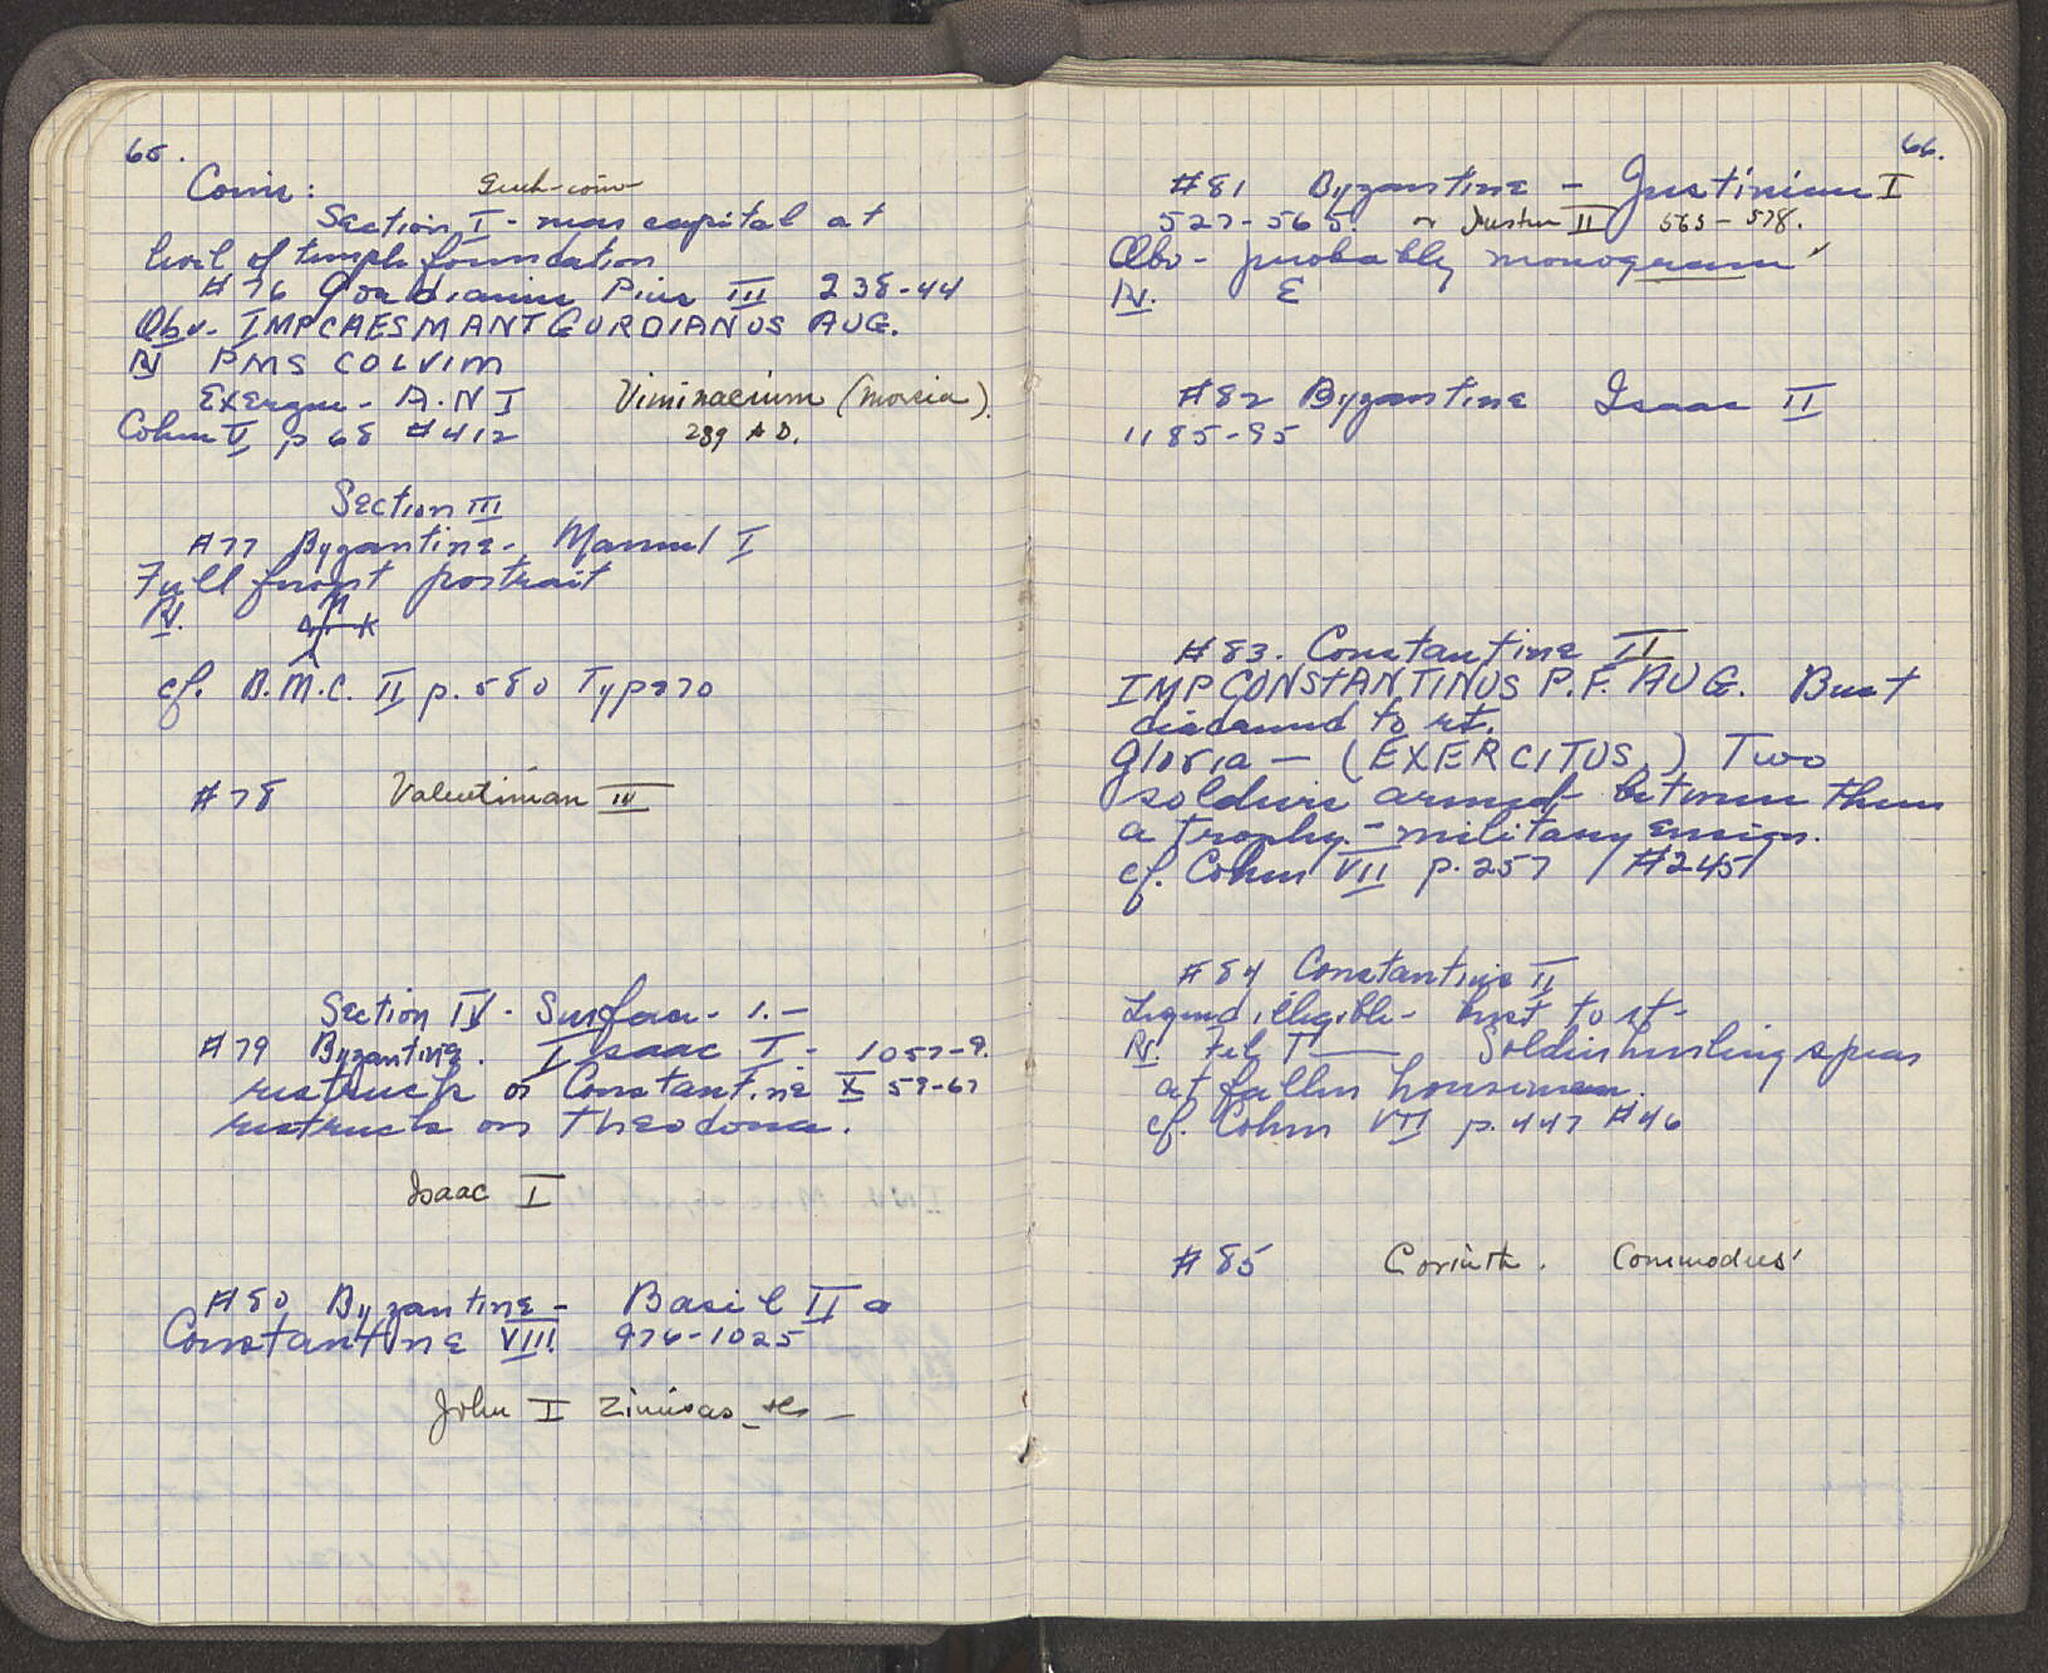 65.
Coins:
Section I - near capital at
level of temple foundation
#76 Gordianus Pius III 238-44
Obv. IMPCAESMANTGORDIANUS AUG.
Rv PMS COLVIM
Exergue - A.N I Viminacium (Moesia).
Cohen V, p 68 #412 239 A D.
Section III
#77 Byzantine - Manuel I
Full front portrait
Rv. M
K
cf. B.M.C. II p. 580 Type 70
#78 Valentinian III
Section IV - Surface - 1. -
#79 Byzantine. Isaac I - 1057-9.
restruck on Constantine X 59-67
restruck on Theodora.
Isaac I
#80 Byzantine - Basil II &
Constantine VIII. 976-1025
John I Zimisas - etc -
66.
#81 Byzantine - Justinian I
527-565. or Justin II 565-578.
Obv - probably monogram
Rv. E
#82 Byzantine Isaac II
1185-95
#83. Constantine II
IMP CONSTANTINUS P.F. AUG. Bust
diademed to rt.
Gloria - (EXERCITUS) Two
soldiers armed - between them
a trophy - military ensign.
cf. Cohen VII p. 257 #245
#84 Constantius II
Legend illegible - bust to rt -
Rv. Fel T— Soldier hurling spear
at fallen horseman.
cf. Cohen VII p. 447 #46
#85 Corinth. Commodus